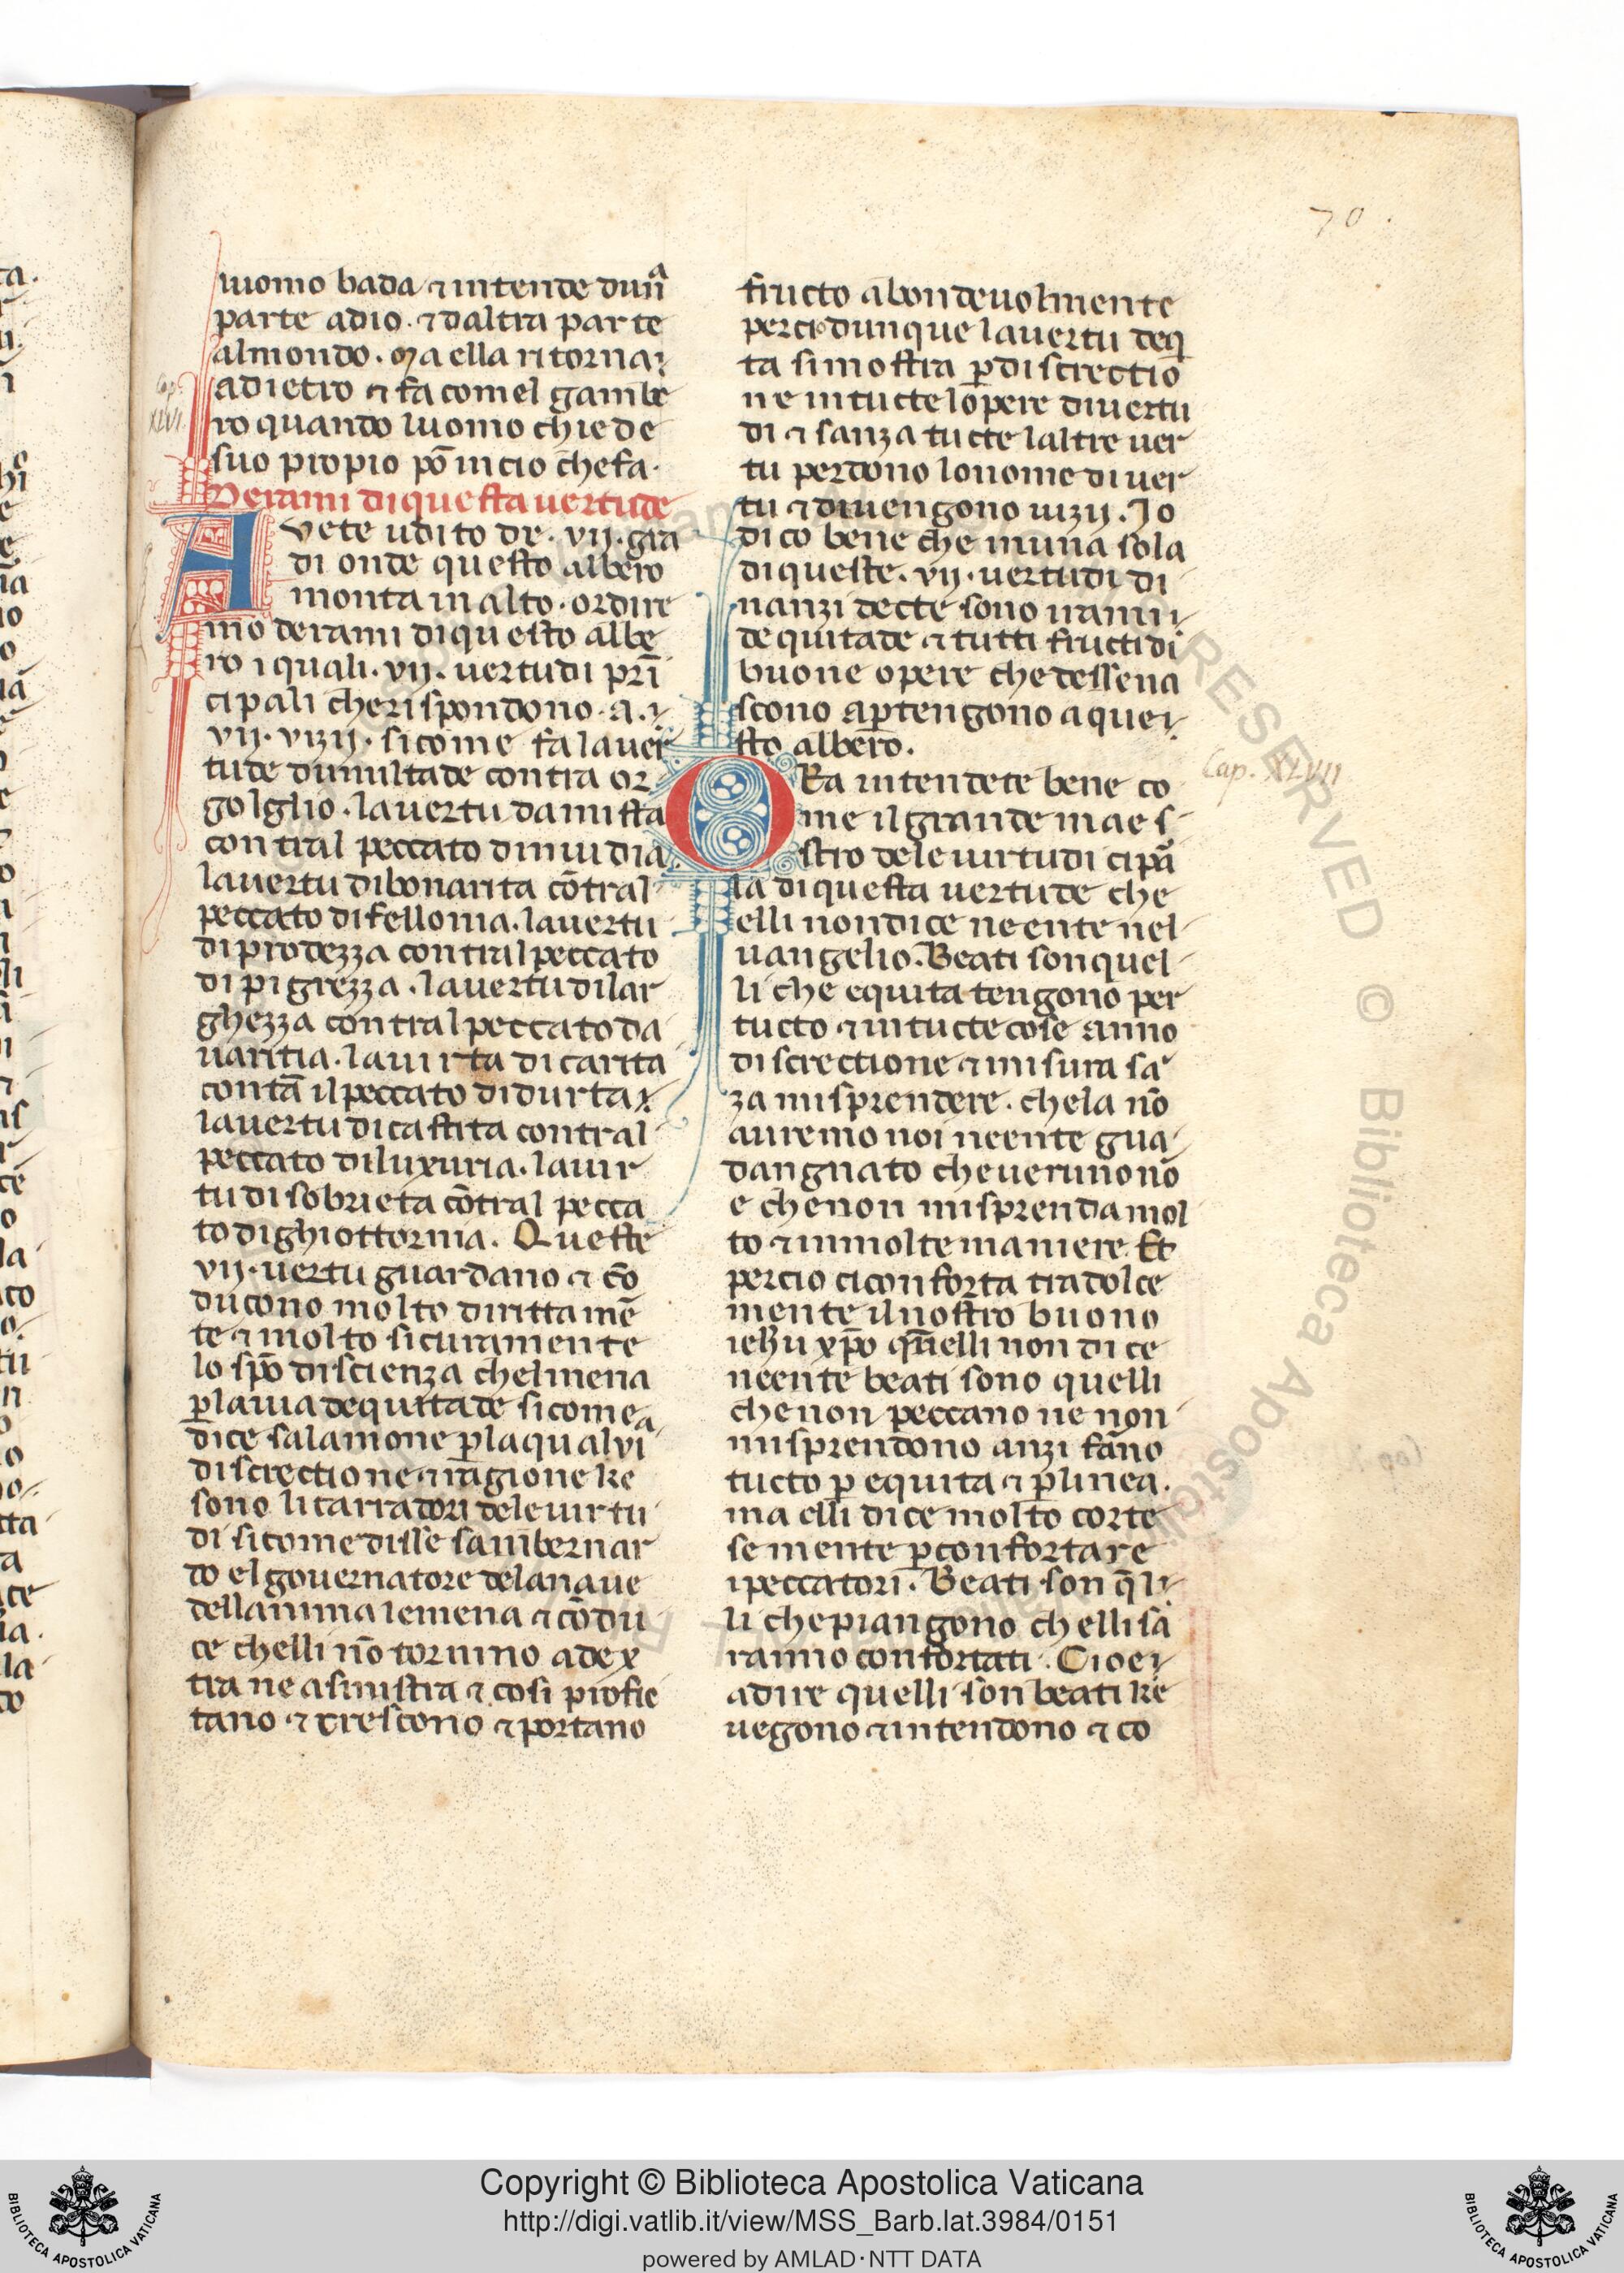 70.
luomo bada ⁊ intende dunᵃ
parte adio. ⁊ daltra parte
almondo. Ma ella ritorna
adietro ⁊ fa comel gambe
ro quando luomo chiede
suo propio pō in cio che fa.
Cap. XLVI.
Derami di questa uertude
Avete udito de. vij. gra
di onde questo albero
monta in alto. ordire
mo derami di questo albe
ro i quali. vij. uertudi prī
cipali che rispondono. a.
vij. vizij. si come fa la uer
tude dumiltade contra or
golglio. la uertu damista
contral peccato dinuidia
la uertu di bonarita cōtral
peccato di fellonia. la uertu
di prodezza contral peccato
di pigrezza. la uertu di lar
ghezza contral peccato da
uaritia. la uirta di carita
contā il peccato didurta
la uertu di castita contral
peccato di luxuria. la uir
tu di sobrieta cōtral pecca
to di ghiottornia. Queste
vij. uertu guardano ⁊ cō
ducono molto dirittamē
te ⁊ molto sicuramente
lo spō di scienza chel mena
p̄ la uia dequitade si come
dice salamone p̄ la qual viᵃ
discrectione ⁊ ragione ke
sono li carradori dele uirtu
di si come disse sam bernar
do el gouernatore dela naue
dellanima le mena ⁊ cōdu
ce chelli nō tornino a dex
tra ne a sinistra ⁊ cosi profic
tano ⁊ crescono ⁊ portano
fructo abondeuolmente
percio dunque la uertu deq
ta si mostra p̄ discrectio
ne in tucte lopere di uertu
di ⁊ sanza tucte laltre uer
tu perdono lo nome di uer
tu ⁊ diuengono uizij. Io
dico bene che in una sola
di queste. vij. uertudi di
nanzi decte sono rami
dequitade ⁊ tutti fructi di
buone opere che desse na
scono ap̄tengono a que
sto albero.
Cap. XLVII
ORa intendete bene co
me il grande maes
stro dele uirtudi ci pā
la di questa uertude che
elli non dice neente nel
uangelio. Beati son quel
li che equita tengono per
tucto ⁊ in tucte cose anno
discrectione ⁊ misura sā
za misprendere. che la nō
auremo noi neente gua
dangnato che ueruno nō
e che non misprenda mol
to ⁊ in molte maniere. Et
percio ci conforta tra dolce
mente il nostro buono
iehu xp̄o qn̄elli non dice
neente beati sono quelli
che non peccano ne non
misprendono anzi fāno
tucto p̄ equita ⁊ p̄ linea.
ma elli dice molto corte
semente p̄ confortare
i peccatori. Beati son q̄l
li che piangono chelli sā
ranno confortati. Cioe
a dire quelli son beati ke
uegono ⁊ intendono ⁊ co
Copyright © Biblioteca Apostolica Vaticana
http://digi.vatlib.it/view/MSS_Barb.lat.3984/0151
powered by AMLAD·NTT DATA
BIBLIOTECA APOSTOLICA VATICANA
BIBLIOTECA APOSTOLICA VATICANA